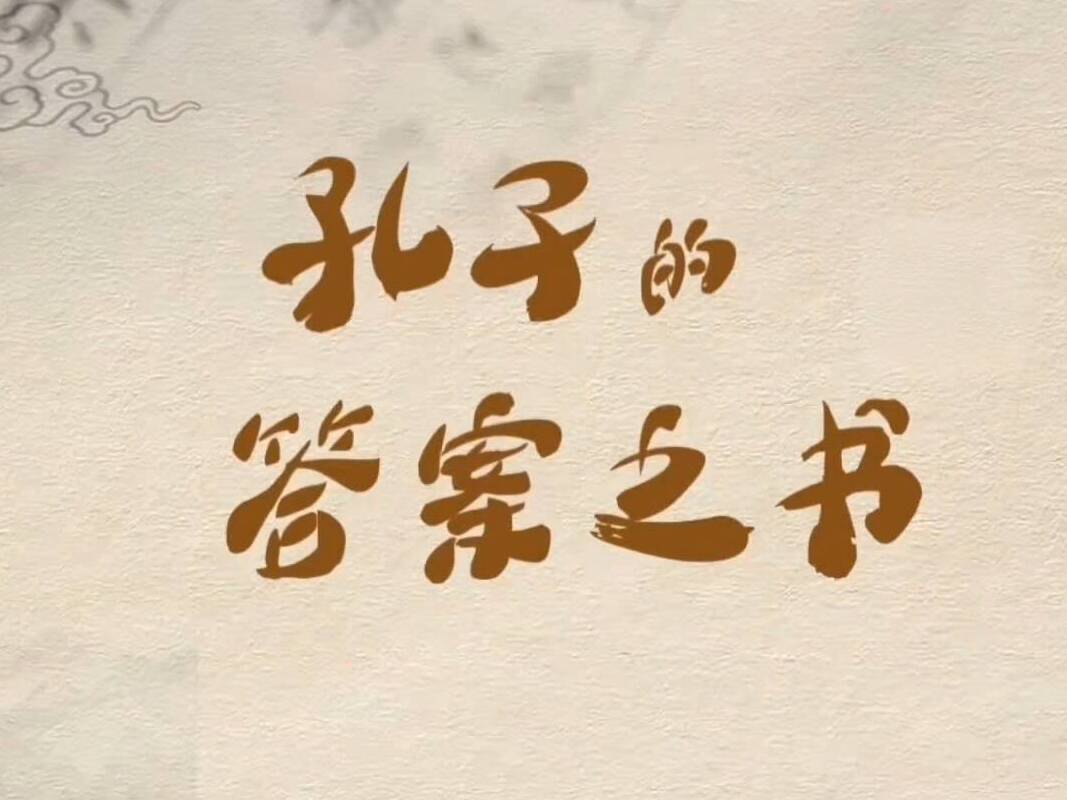 孔子的
答案之书